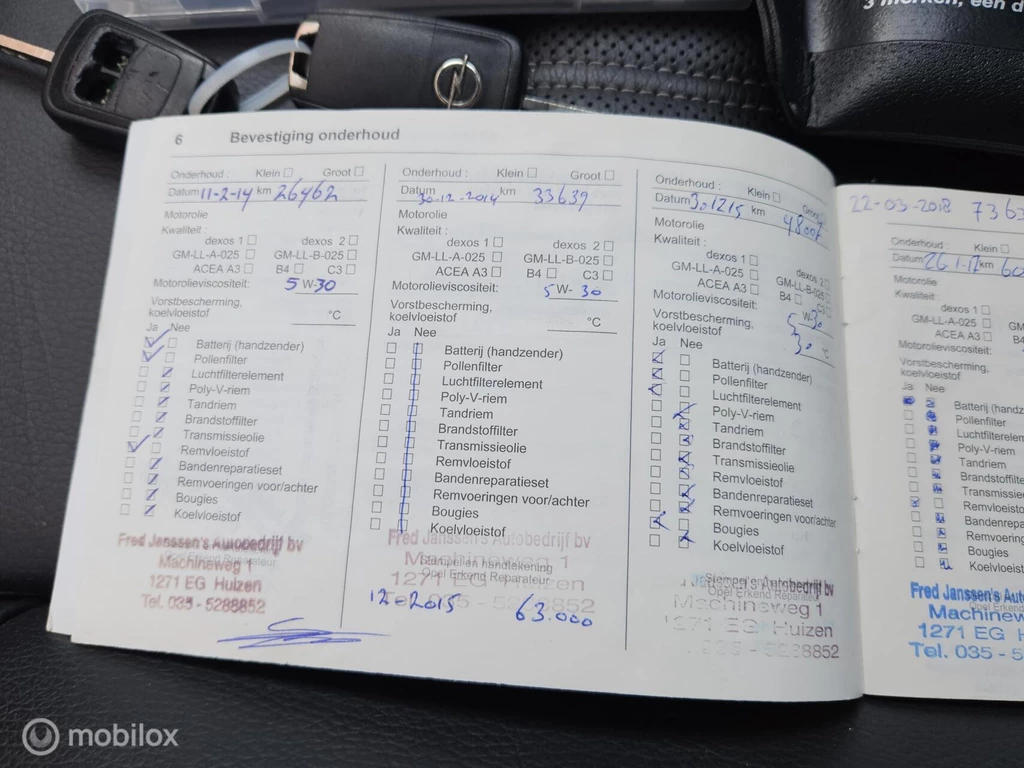 3 merken, een d
6 Bevestiging onderhoud
Onderhoud : Klein Groot
Datum 11-2-14 km 26462
Motorolie
Kwaliteit :
dexos 1 dexos 2
GM-LL-A-025 GM-LL-B-025
ACEA A3 B4 C3
Motorolieviscositeit: 5 W-30
Vorstbescherming,
koelvloeistof °C
Ja Nee
Batterij (handzender)
Pollenfilter
Luchtfilterelement
Poly-V-riem
Tandriem
Brandstoffilter
Transmissieolie
Remvloeistof
Bandenreparatieset
Remvoeringen voor/achter
Bougies
Koelvloeistof
Fred Janssen's Autobedrijf bv
Opel Erkend Reparateur
Machineweg 1
1271 EG Huizen
Tel. 035 - 5288852
Onderhoud : Klein Groot
Datum 30-12-2014 km 33639
Motorolie
Kwaliteit :
dexos 1 dexos 2
GM-LL-A-025 GM-LL-B-025
ACEA A3 B4 C3
Motorolieviscositeit: 5 W- 30
Vorstbescherming,
koelvloeistof °C
Ja Nee
Batterij (handzender)
Pollenfilter
Luchtfilterelement
Poly-V-riem
Tandriem
Brandstoffilter
Transmissieolie
Remvloeistof
Bandenreparatieset
Remvoeringen voor/achter
Bougies
Koelvloeistof
Fred Janssen's Autobedrijf bv
Machineweg 1
Stempel en handtekening
Opel Erkend Reparateur
1271 EG Huizen
Tel. 035 - 5288852
12-2015 63.000
Onderhoud : Klein Groot
Datum 3.1215 km 48007
Motorolie
Kwaliteit :
dexos 1 dexos 2
GM-LL-A-025 GM-LL-B-025
ACEA A3 B4 C3
Motorolieviscositeit: 5 W-30
Vorstbescherming,
koelvloeistof 30 °C
Ja Nee
Batterij (handzender)
Pollenfilter
Luchtfilterelement
Poly-V-riem
Tandriem
Brandstoffilter
Transmissieolie
Remvloeistof
Bandenreparatieset
Remvoeringen voor/achter
Bougies
Koelvloeistof
Janssen's Autobedrijf bv
Opel Erkend Reparateur
Machineweg 1
1271 EG Huizen
035 - 5288852
22-03-2018 7363
Onderhoud : Klein
Datum 26.1.17 km 60
Motorolie
Kwaliteit :
dexos 1
GM-LL-A-025
ACEA A3 B4
Motorolieviscositeit:
Vorstbescherming,
koelvloeistof
Ja Nee
Batterij (handz
Pollenfilter
Luchtfilterelem
Poly-V-riem
Tandriem
Brandstoffilte
Transmissie
Remvloeisto
Bandenrepa
Remvoering
Bougies
Koelvloeist
Fred Janssen's Auto
Opel Erkend
Machinew
1271 EG H
Tel. 035 - 5
mobilox